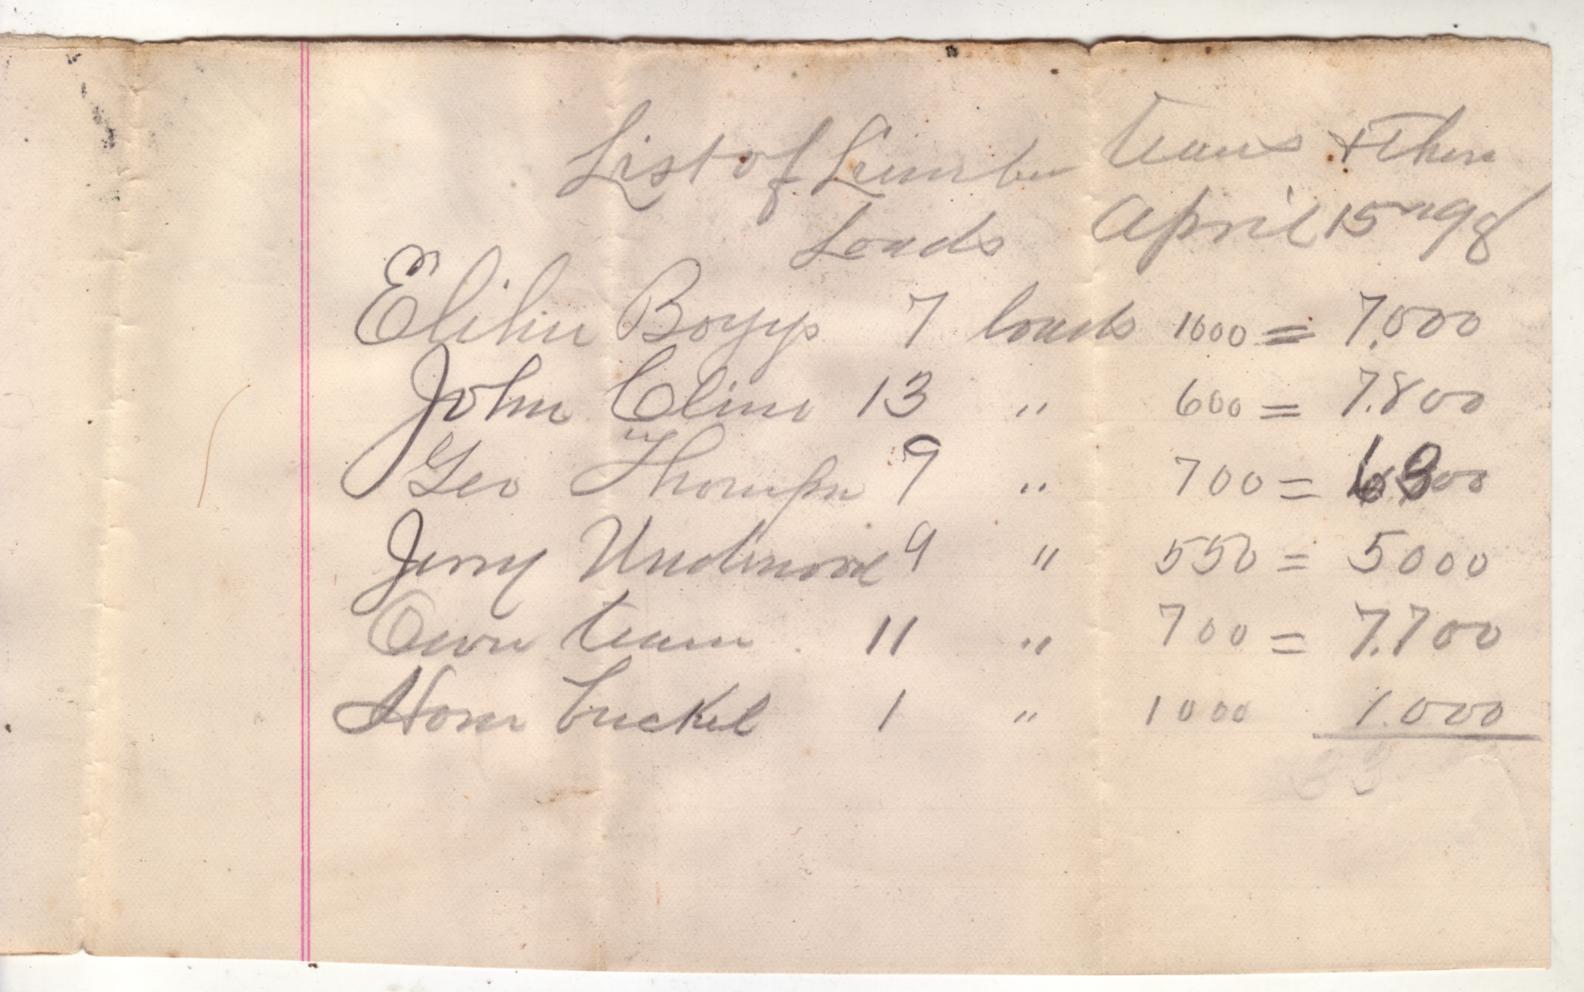 List of Lumber teams & their
Loads April 15th 98
Elihu Boggs 7 loads 1000 = 7,000
John Cline 13 " 600 = 7.800
Geo Thompson 9 " 700 = 6300
Jerry Underwood 9 " 550 = 5000
Own team 11 " 700 = 7.700
1 " 1000 1.000